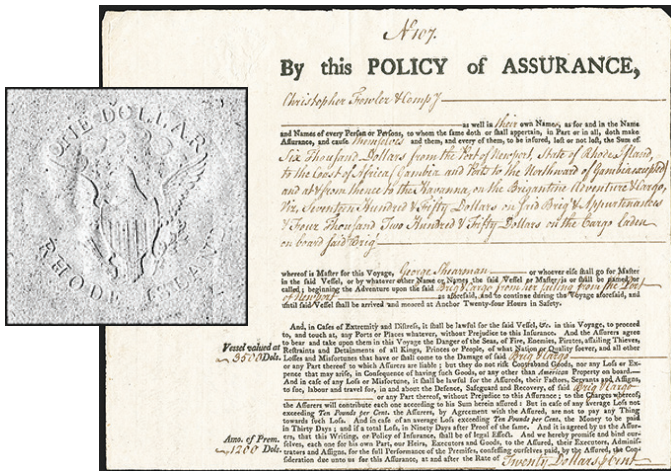 No 107.
By this POLICY of ASSURANCE,
Christopher Fowler & Compy
as well in their own Names, as for and in the Name
and Names of every Person or Persons, to whom the same doth or shall appertain, in Part or in all, doth make
Assurance, and cause themselves and them, and every of them, to be insured, lost or not lost, the Sum of
Six Thousand Dollars from the Port of Newport, State of Rhode Island,
to the Coast of Africa (Gambia and Ports to the Northward of Gambia excepted)
and at & from thence to the Havanna, on the Brigantine Adventure & Cargo,
Viz, Seventeen Hundred & Fifty Dollars on said Brig & Appurtenances
& Four Thousand Two Hundred & Fifty Dollars on the Cargo laden
on board said Brig
whereof is Master for this Voyage, George Shearman or whoever else shall go for Master
in the said Vessel, or by whatever other Name or Names the said Vessel or Master is or shall be named or
called; beginning the Adventure upon the said Brig & Cargo from her sailing from the Port
of Newport as aforesaid, and to continue during the Voyage aforesaid, and
until said Vessel shall be arrived and moored at Anchor Twenty-four Hours in Safety.
And, in Cases of Extremity and Distress, it shall be lawful for the said Vessel, &c. in this Voyage, to proceed
to, and touch at, any Ports or Places whatever, without Prejudice to this Insurance. And the Assurers agree
Vessel valued at
to bear and take upon them in this Voyage the Danger of the Seas, of Fire, Enemies, Pirates, assailing Thieves,
3500 Dols.
Restraints and Detainments of all Kings, Princes or People, of what Nation or Quality soever, and all other
Losses and Misfortunes that have or shall come to the Damage of said Brig & Cargo
or any Part thereof to which Assurers are liable; but they do not risk Contraband Goods, nor any Loss or Ex-
pence that may arise, in Consequence of having such Goods, or any other than American Property on board.
And in case of any Loss or Misfortune, it shall be lawful for the Assured, their Factors, Servants and Assigns,
to sue, labour and travel for, in and about the Defence, Safeguard and Recovery, of said Brig & Cargo
or any Part thereof, without Prejudice to this Assurance; to the Charges whereof,
the Assurers will contribute each one according to his Sum herein assured: But in case of any average Loss not
exceeding Ten Pounds per Cent. the Assurers, by Agreement with the Assured, are not to pay any Thing
towards such Loss. And in case of an average Loss exceeding Ten Pounds per Cent. the Money to be paid
in Thirty Days; and if a total Loss, in Ninety Days after Proof of the same. And it is agreed by us the Assur-
Amo. of Prem.
ers, that this Writing, or Policy of Insurance, shall be of legal Effect. And we hereby promise and bind our-
1200 Dols.
selves, each one for his own Part, our Heirs, Executors and Goods, to the Assured, their Executors, Adminis-
trators and Assigns, for the full Performance of the Premises, confessing ourselves paid, by the Assured, the Con-
sideration due unto us for this Assurance, at and after the Rate of Twenty Dollars, & Cent
ONE DOLLAR
RHODE